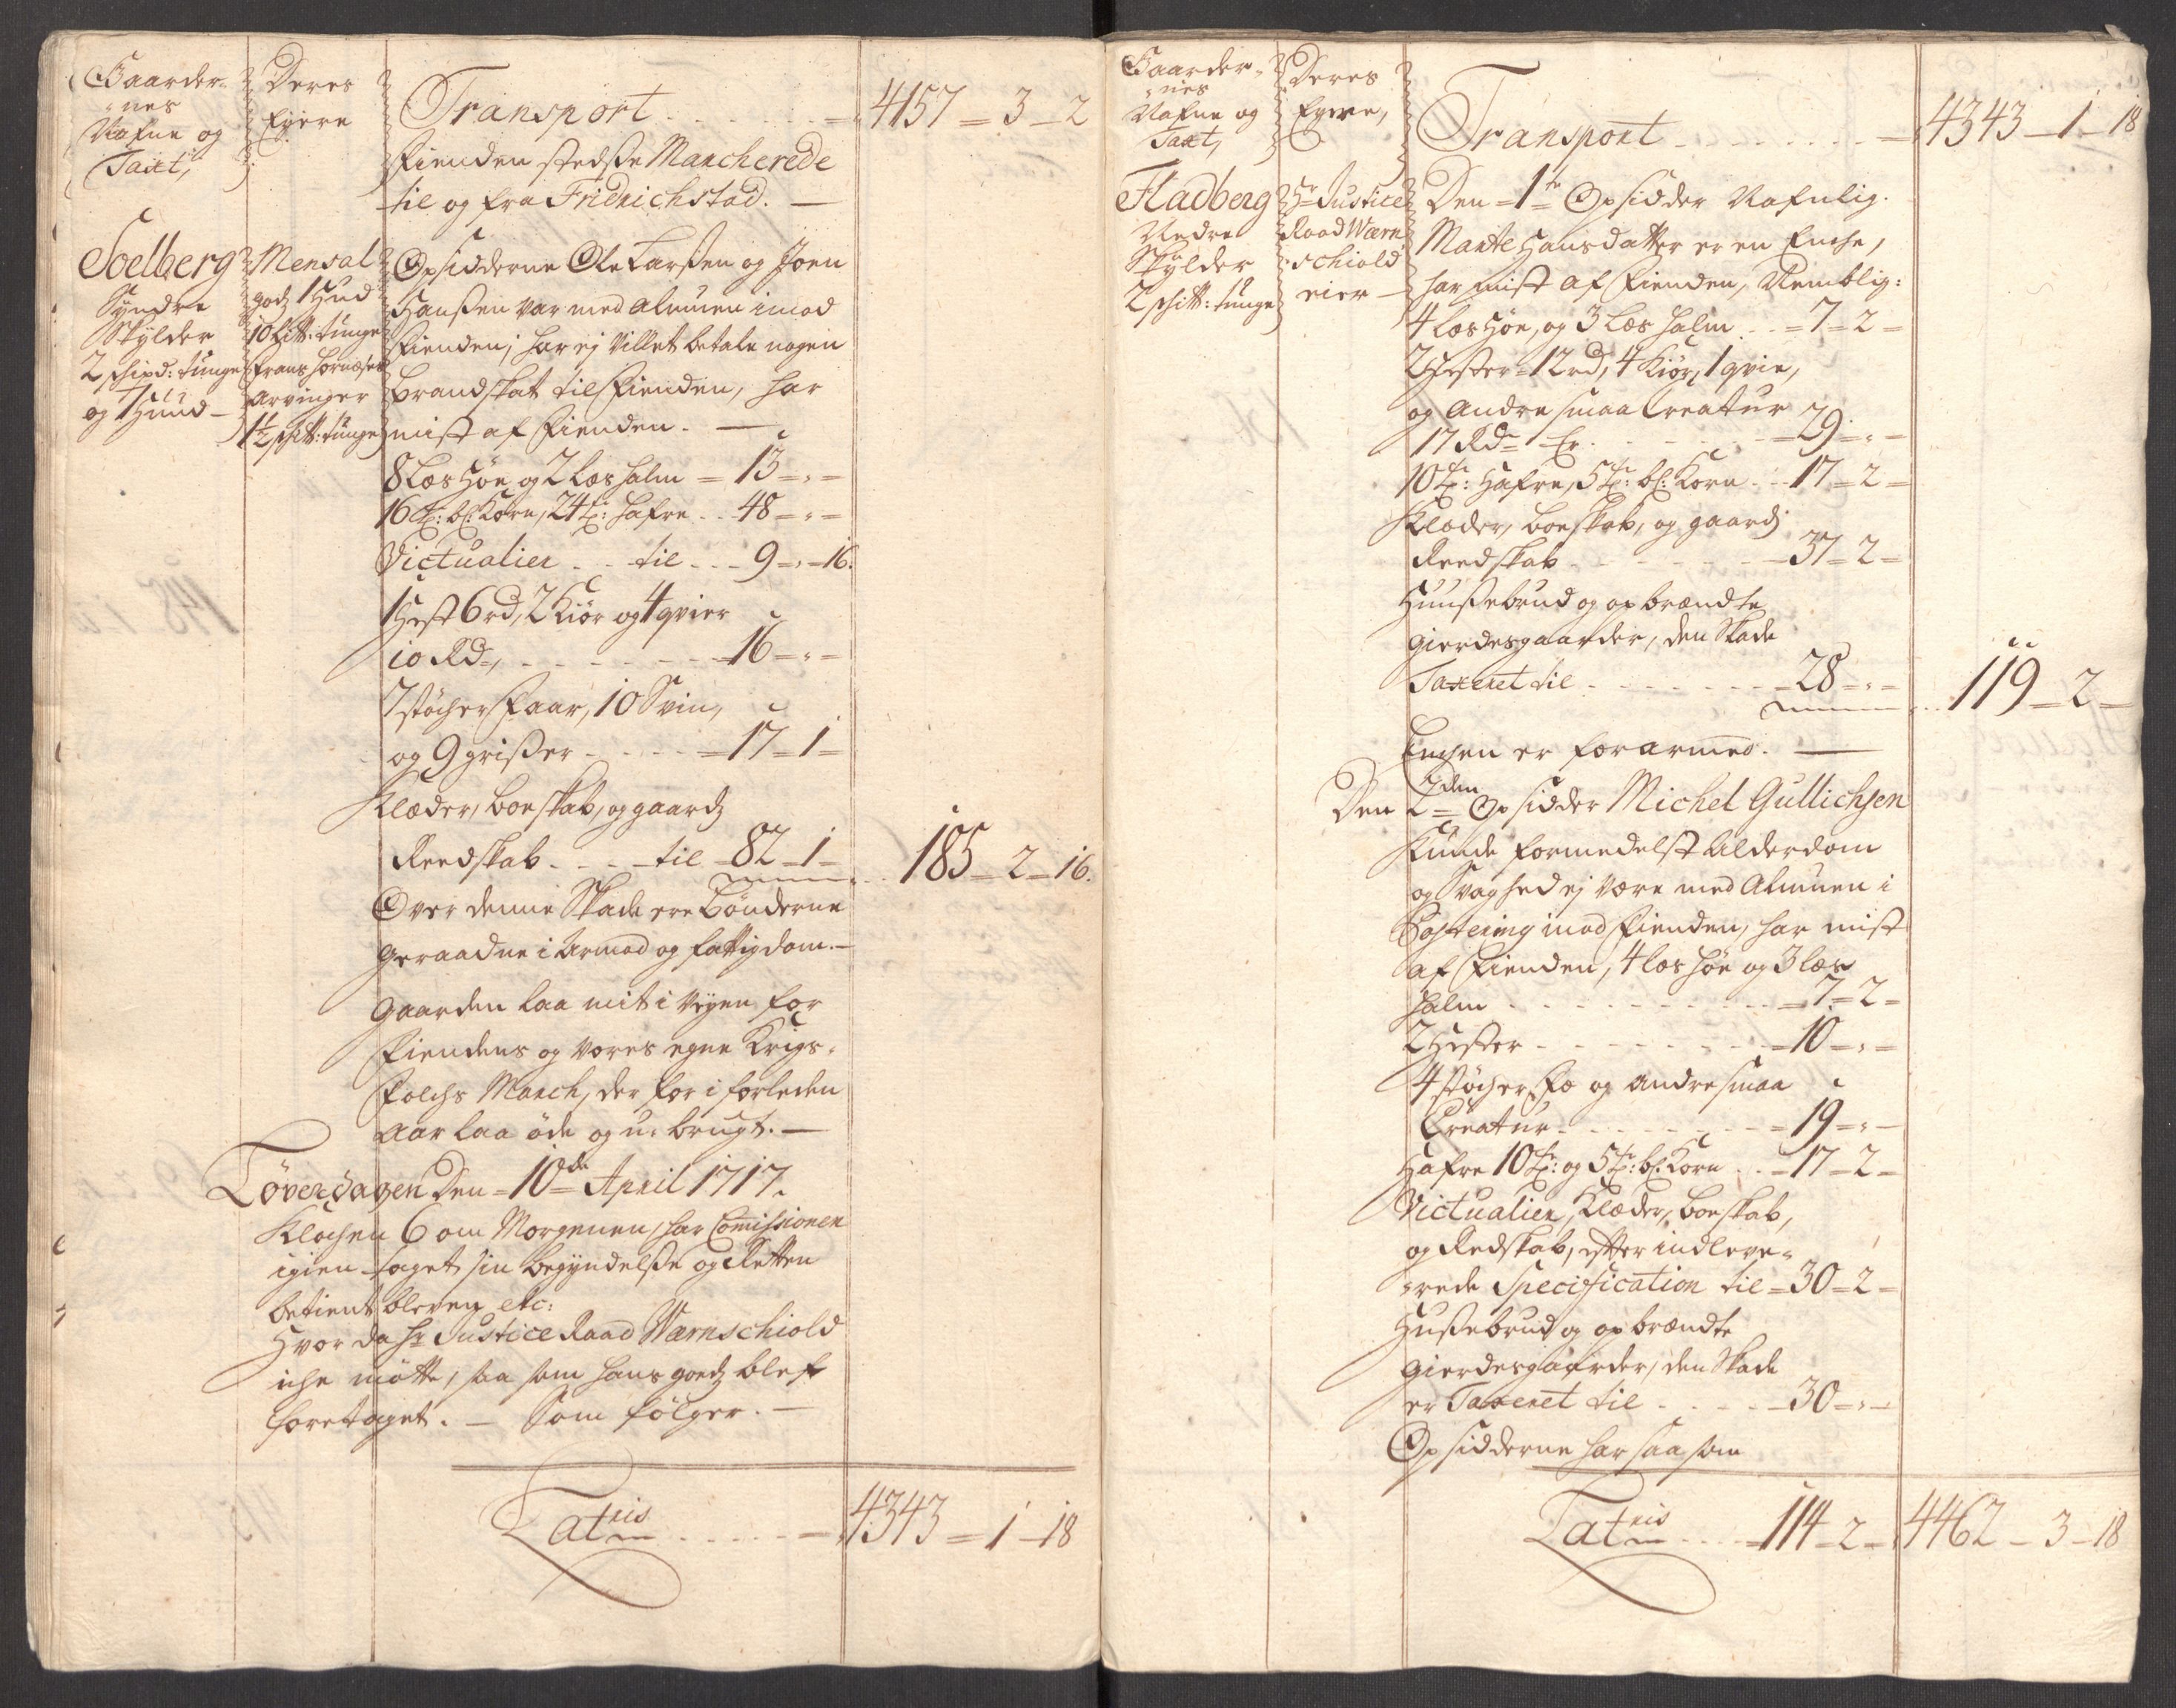 Gaarder-
nes
Nafne og
Taxt,
Deres
Eyere
Transport - - - 4157 - 3 - 2
Fienden stedsse Marcherede
til og fra Fridrichstad. -
Soelberg
Syndre
Skylder
2 schipd: tunge
og 1 Huud -
Mensal
godz 1 Hud
10 litt: tunge
Frans
Arvinger
1½ schitt: tunge
Opsidderne Ole Larssen og Joen
Hanssen var med Almuen imod
Fienden; har ej villet betale nogen
brandskat til Fienden, har
mist af Fienden. -
8 Læs Høe og 2 Læs halm = 13 - " -
16 tr: bl: Korn, 24 tr: hafre - - 48 - " -
Victualier - - til - - 9 - " - 16.
1 Hest 6 rd, 2 Kiør og 4 qvier
10 Rd, - - - - 16 - " -
7 støcher Faar, 10 Svin,
og 9 grisser - - - - 17 - 1 -
Klæder, boeskab, og gaardz
Reedskab - - - til - 82 - 1 - 185 - 2 - 16.
Over denne Skade ere bønderne
geraadne i Armod og fattigdom. -
Gaarden laa mit i Veyen for
Fiendens og vores egne Krigs-
Folchs March, der for i forleden
Aar laa øde og u-brugt. -
Løverdagen Den 10de April 1717.
Klochen 6 om Morgenen, har Commissionen
igien taget sin begyndelsse og Retten
betient bleven etc:
Hvor da Hr Justice Raad Wærnschiold
iche møtte, saa som hans godz blef
foretaget. - Som følger. -
Latris - - - - 4343 - 1 - 18
Gaarder-
nes
Nafne og
Taxt,
Deres
Eyere,
Transport - - - - 4343 - 1 - 18
Fladberg
Nedre
Skylder
2 schitt: tunge
Hr Justice
Raad Wærn
schiold
eier -
Den 1te Opsidder Nafnlig.
Marte Hansdatter er en Enche,
har mist af Fienden, Nemblig:
4 læs Høe, og 3 Læs halm - - 7 - 2 -
2 Hester 12 rd, 4 Kiør, 1 qvie,
og andre smaa Creatur
17 Rd Er. - - - - 29 - " -
10 tr: Hafre, 5 tr: bl: Korn - - 17 - 2 -
Klæder, boeskab, og gaardz
Reedskab - - - - 37 - 2 -
Huussebrud og opbrændte
gierdesgaarder, den Skade
Taxeret til - - - - 28 - " - 119 - 2 -
Enchen er forarmed. -
Den 2den Opsidder Michel Gullichsen
Kunde formedelst Alderdom
og Svaghed ej være med Almuen i
Postering imod Fienden, har mist
af Fienden, 4 læs høe og 3 læs
halm - - - - 7 - 2 -
2 Hester - - - - 10 - " -
4 støcher Fæ og andre smaa
Creatur - - - - 19 - " -
Hafre 10 tr: og 5 tr: bl: Korn - - 17 - 2 -
Victualier, Klæder, boeskab,
og Redskab, efter indleve-
rede Specification til - 30 - 2 -
Hussebrud og opbrændte
gierdesgaarder, den Skade
er Taxeret til - - - - 30 - " -
Opsidderne har saa som
Latris - - - 114 - 2 - 4462 - 3 - 18